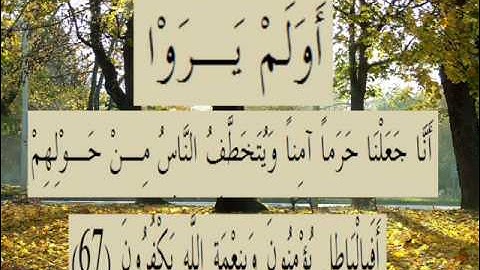 أَوَلَمْ يَــرَوْا
أَنَّا جَعَلْنَا حَرَماً آمِناً وَيُتَخَطَّفُ النَّاسُ مِــنْ حَــوْلِهِمْ
أَفَبِالْبَاطِلِ يُؤْمِنُونَ وَبِنِعْمَةِ اللَّهِ يَكْفُرُونَ (67)